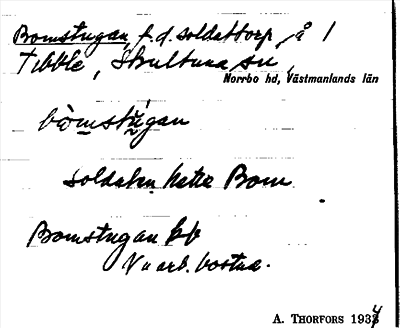 Bomstugan f.d. soldattorp, å 1
Tibble, Skultuna sn,
Norrbo hd, Västmanlands län
bòmstùgan
soldaten hette Bom
Bomstugan kb
Nu arb. bostad.
A. THORFORS 1934